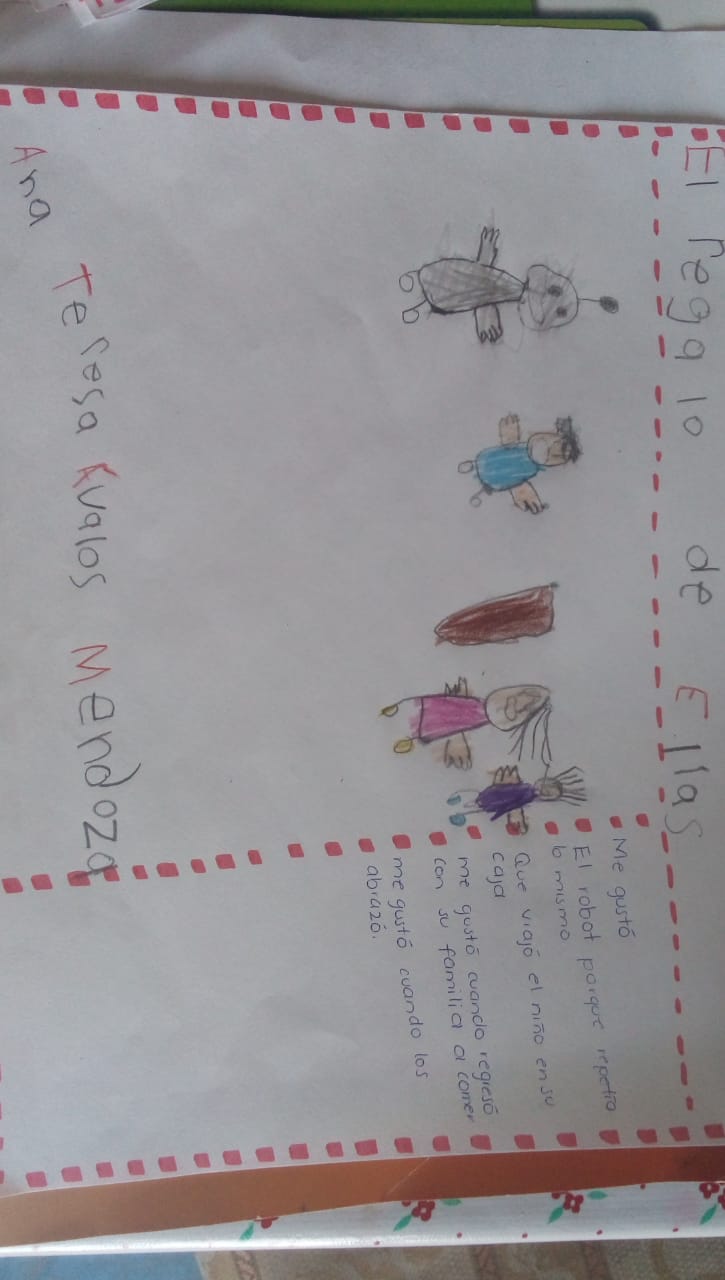 El regalo de Ellas
Me gustó
El robot porque repetia
lo mismo
Que viajó el niño en su
caja
me gustó cuando regresó
con su familia a comer
me gustó cuando los
abrazó.
Ana Teresa Avalos Mendoza